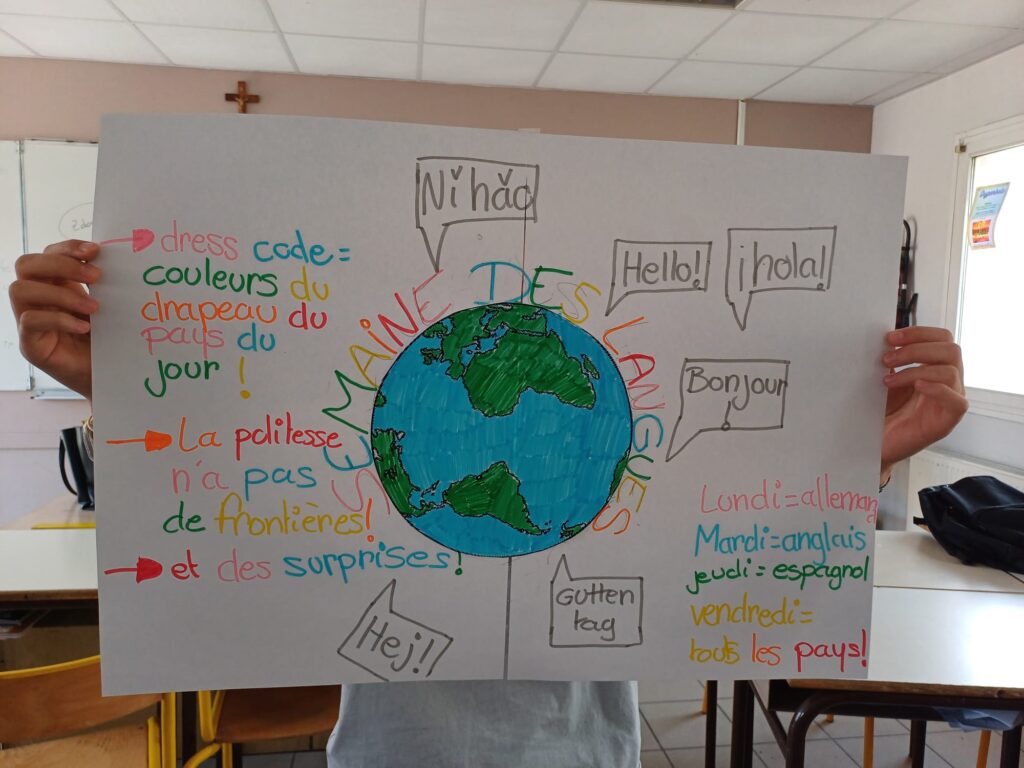 Nǐ hǎo
Hello!
¡hola!
Bonjour!
SEMAINE DES LANGUES
dress code =
couleurs du
drapeau du
pays du
jour !
La politesse
n'a pas
de frontières!
et des surprises!
Hej!
Gutten
tag
Lundi = allemand
Mardi = anglais
jeudi = espagnol
vendredi =
touts les pays!